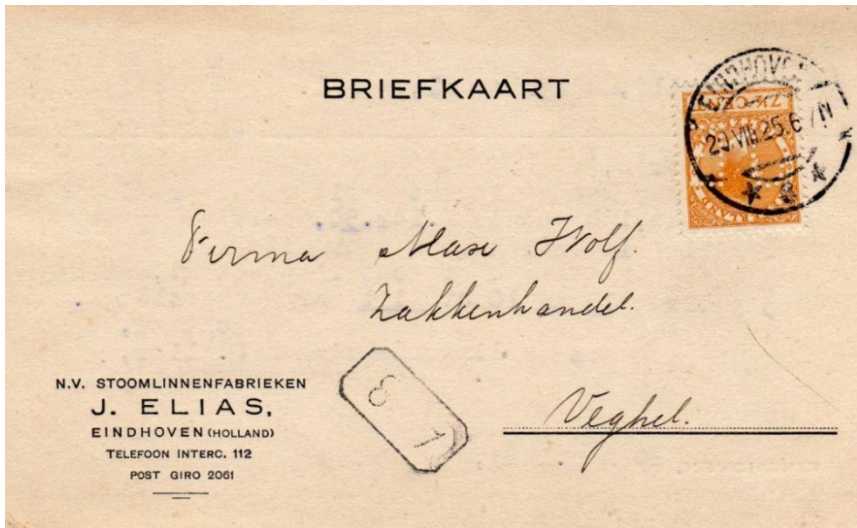 BRIEFKAART
EINDHOVEN
7½ CENT
29.VIII.25.6-7N
1
Firma Max Wolf.
Zakkenhandel.
Veghel.
N.V. STOOMLINNENFABRIEKEN
J. ELIAS,
EINDHOVEN (HOLLAND)
TELEFOON INTERC. 112
POST GIRO 2061
8 1